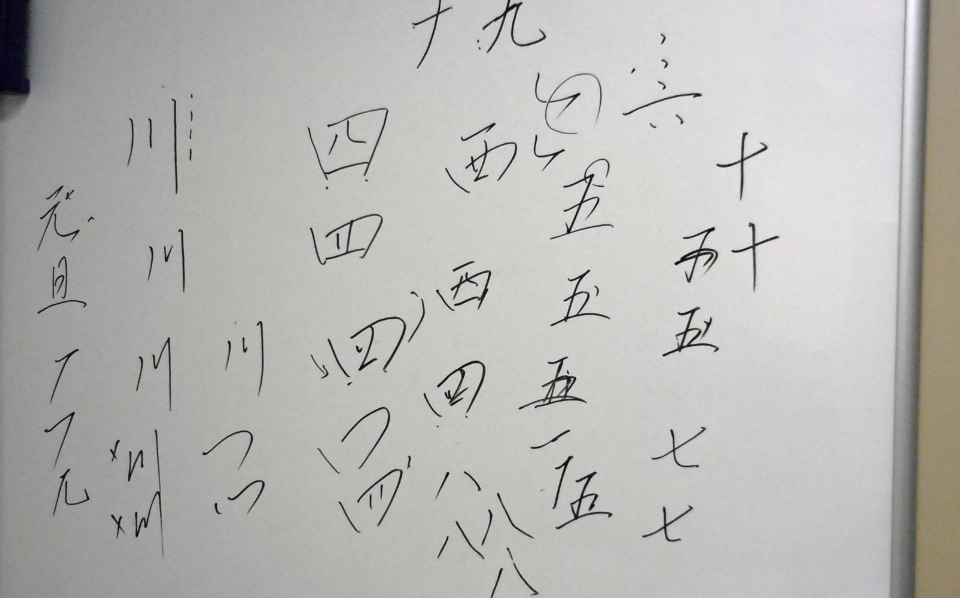 十九
六
元旦
川
川
川
川
川
川
四
四
四
四
西
西
四
五
五
五
五
八
八
八
八
十
五十
五
七
七